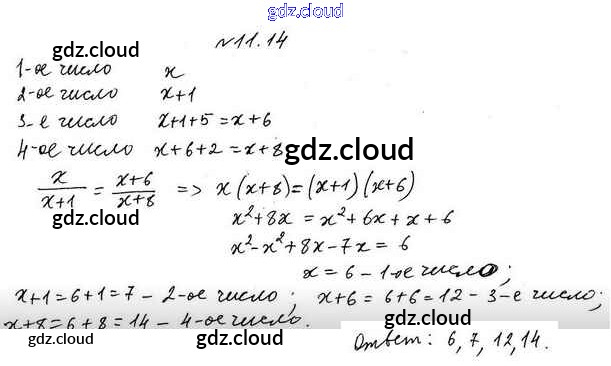 gdz.cloud
gdz.cloud
№11.14
1-ое число x
gdz.cloud
2-ое число x+1
3-е число x+1+5=x+6
4-ое число x+6+2=x+8
gdz.cloud
x/(x+1) = (x+6)/(x+8) => x(x+8)=(x+1)(x+6)
gdz.cloud
gdz.cloud
x²+8x = x²+6x+x+6
x²-x²+8x-7x = 6
x = 6 – 1-ое число;
x+1=6+1=7 – 2-ое число; x+6=6+6=12 – 3-е число;
gdz.cloud
gdz.cloud
x+8=6+8=14 – 4-ое число.
gdz.cloud
gdz.cloud
Ответ: 6, 7, 12, 14.